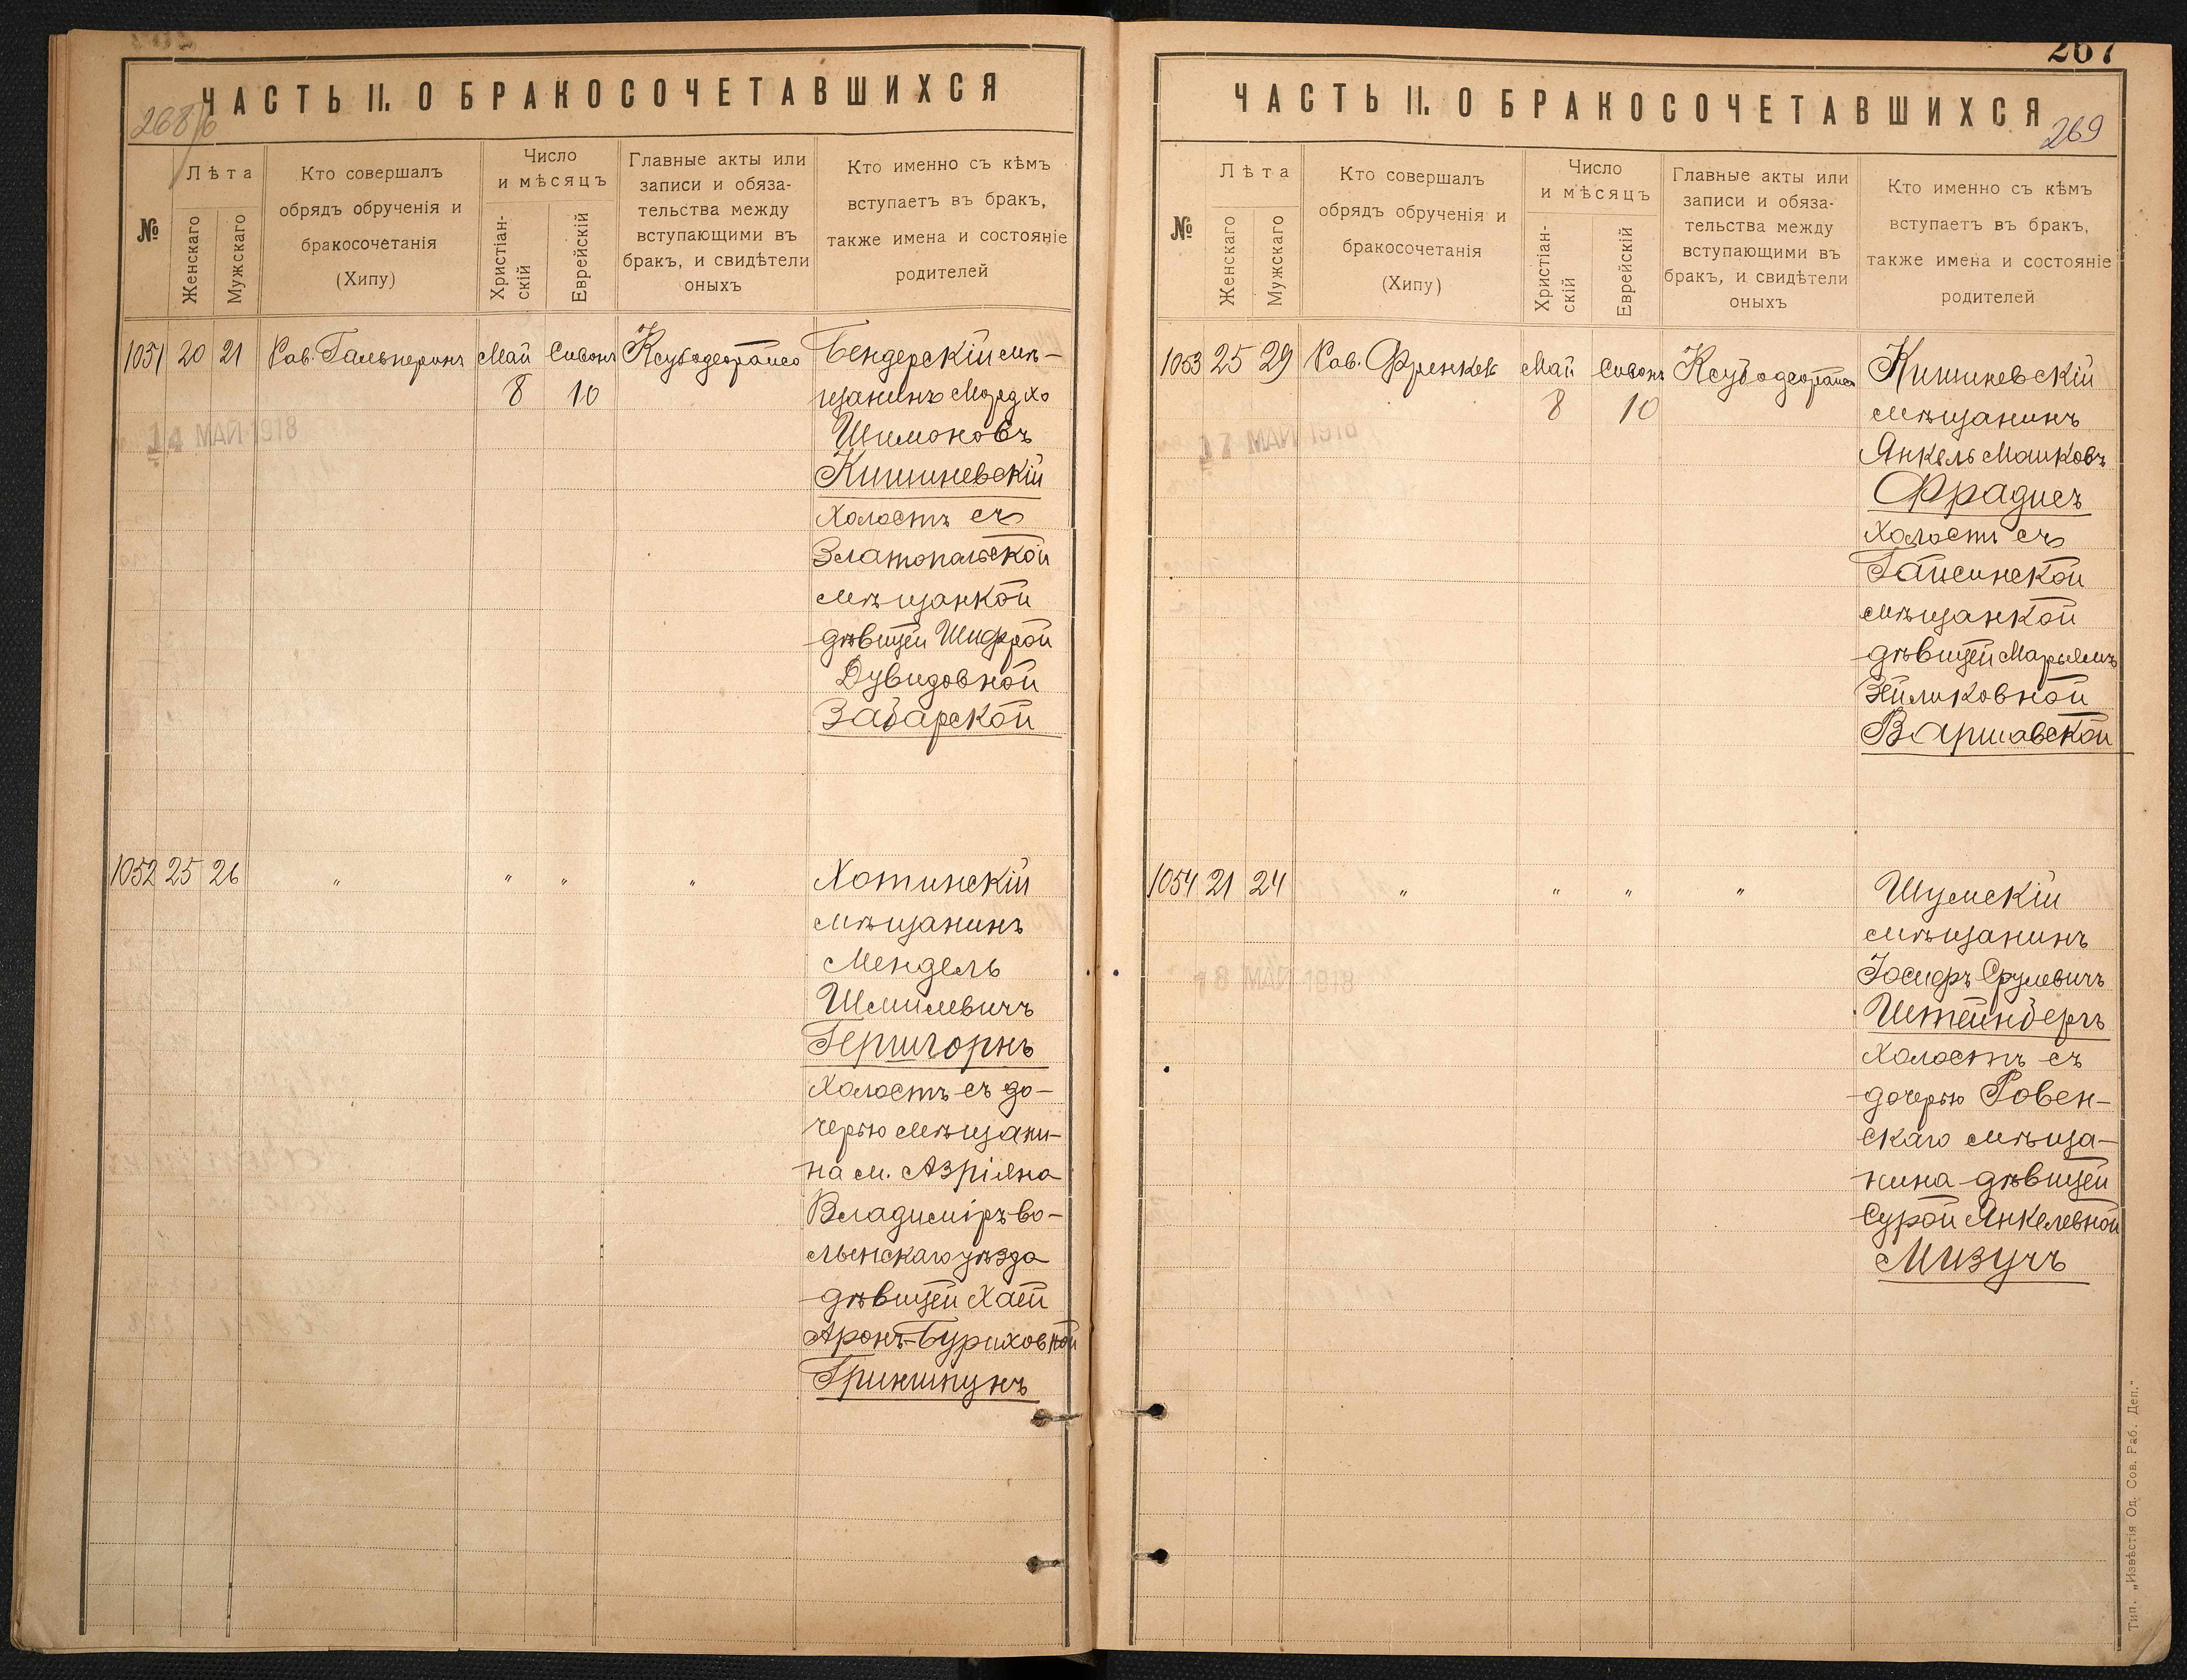 ЧАСТЬ II. О БРАКОСОЧЕТАВШИХСЯ
268/б
№
Лѣта
Женскаго
Мужскаго
Кто совершалъ
обрядъ обрученія и
бракосочетанія
(Хипу)
Число
и мѣсяцъ
Христіан-
скій
Еврейскій
Главные акты или
записи и обяза-
тельства между
вступающими въ
бракъ, и свидѣтели
оныхъ
Кто именно съ кѣмъ
вступаетъ въ бракъ,
также имена и состояніе
родителей
1051 20 21 Рав. Гальперинъ Май Сивонъ Ксубодеорайсо Бендерскій мѣ-
8 10 щанинъ Мордхо
14 МАЙ 1918
Шимоновъ
Кишиневскій
холостъ съ
Златопольской
мѣщанкой
дѣвицей Шифрой
Дувидовной
Забарской
1052 25 26 " " " " Хотинскій
мѣщанинъ
Мендель
Шмилевичъ
Гершгорнъ
холостъ съ до-
черью мѣщани-
на м. Азріяна
Владимiръ-во-
лынскаго уѣзда
дѣвицей Хаей
Аронъ-Буриховной
Гриншпунъ
267
ЧАСТЬ II. О БРАКОСОЧЕТАВШИХСЯ
269
№
Лѣта
Женскаго
Мужскаго
Кто совершалъ
обрядъ обрученія и
бракосочетанія
(Хипу)
Число
и мѣсяцъ
Христіан-
скій
Еврейскій
Главные акты или
записи и обяза-
тельства между
вступающими въ
бракъ, и свидѣтели
оныхъ
Кто именно съ кѣмъ
вступаетъ въ бракъ,
также имена и состояніе
родителей
1053 25 29 Рав. Френкель Май Сивонъ Ксубодеорайсо Кишиневскій
8 10 мѣщанинъ
17 МАЙ 1918
Янкель Манковъ
Фрадисъ
холостъ съ
Гайсинской
мѣщанкой
дѣвицей Марьямъ
Эйликовной
Варшавской
1054 21 24 " " " " Шумскій
мѣщанинъ
18 МАЙ 1918
Іосифъ Срулевичъ
Штейнбергъ
холостъ съ
дочерью Ровен-
скаго мѣща-
нина дѣвицей
Сурой Янкелевной
Мизучъ
Тип. „Извѣстія Од. Сов. Раб. Деп."